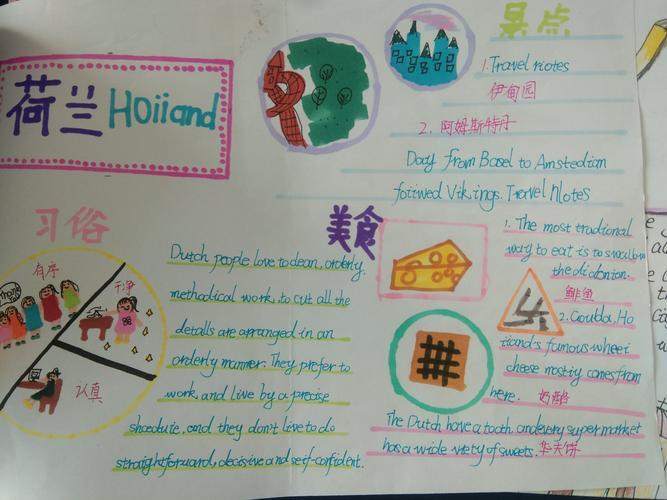 荷兰 Hoiiand
景点
1. Travel notes
伊甸园
2. 阿姆斯特丹
Day from Basel to Amstedian
foiiwed Vikings. Travel Notes
习俗
有序
干净
认真
Dutch people love to clean, orderly,
methodical work, to cut all the
details are arranged in an
orderly manner. They prefer to
work and live by a precise
shcedute, and they don't live to do
straightforward, decisive and seif-confident.
美食
1. The most tradional
way to eat is to swallow
the didonion.
鲱鱼
2. Goulda, Ho
iiand's famous wheei
cheese mostiy comes from
here. 奶酪
The Dutch have a tooth, and every super market
has a wide vriety of sweets. 华夫饼